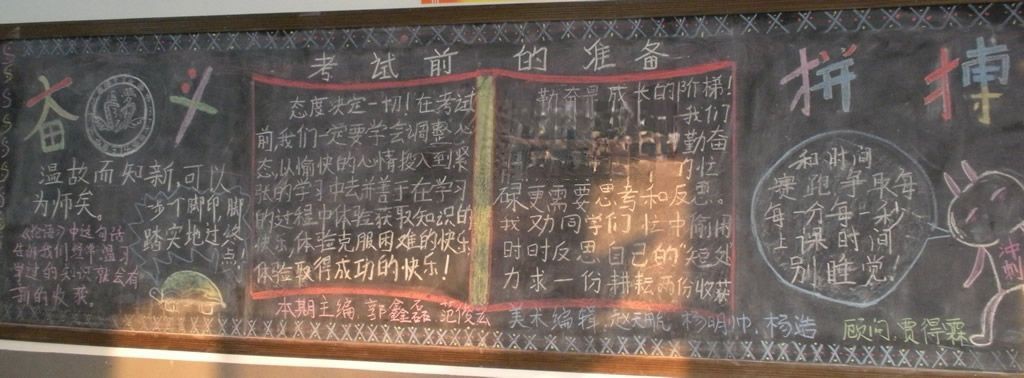 考试前的准备
奋 斗
拼 搏
温故而知新,可以
为师矣。
一步个脚印脚
踏实地过终
点!
《论语》中这句话
告诉我们经常温习
学过的知识就会有
新的收获。
态度决定一切!在考试
前,我们一定要学会调整心
态,从愉快的心情投入到紧
张的学习中去并善于在学习
的过程中体验获取知识的
快乐,体验克服困难的快乐
体验取得成功的快乐!
勤奋是成长的阶梯!
我们
勤奋
力忙
碌更需要思考和反思。
我劝同学们忙中偷闲
时时反思自己的"短处
力求一份耕耘两份收获
和时间
赛跑争取每
每一分每一秒
上课时间
别睡觉!
冲刺
本期主编 郭鑫磊 范俊云
美术编辑 赵天航 杨明帅 杨浩
顾问:贾得霖